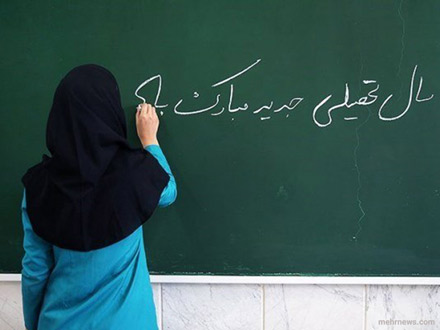 سال تحصیلی جدید مبارک با
mehrnews.com